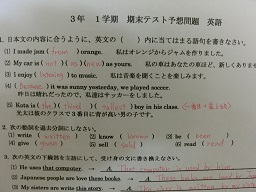 3年　1学期　期末テスト予想問題　英語
1. 日本文の内容に合うように、英文の（　）内に当てはまる語句を書きなさい。
(1) I made jam ( from ) orange.　私はオレンジからジャムを作りました。
(2) My car is ( not ) ( as ) new as yours.　私の車はあなたの車ほど、新しくありません
(3) I enjoy ( listening ) to music.　私は音楽を聞くことを楽しみます。
(4) ( Because ) it was sunny yesterday, we played soccer.
昨日は晴れだったので、私達はサッカーをしました。
(5) Kota is ( the ) ( third ) ( tallest ) boy in his class.
光太は彼のクラスで3番目に背が高い男の子です。
2. 次の動詞を過去分詞にしなさい。
(1) write (2) know (3) be (
(4) give ( given ) (5) sell ( sold ) (6) read ( read )
3. 次の英文の下線部を主語にして、受け身の文に書き換えなさい。
(1) He uses that computer. →
(2) Japanese people are love these books. →
(3) My sisters are write this story. →